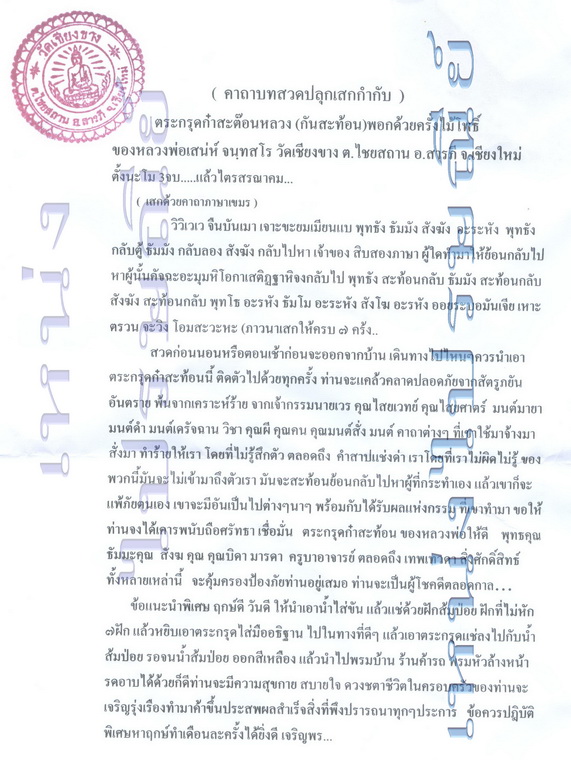 วัดเชียงขาง
ต.ไชยสถาน อ.สารภี จ.เชียงใหม่
( คาถาบทสวดปลุกเสกกำกับ )
ตระกรุดก๋าสะต๊อนหลวง (กันสะท้อน)พอกด้วยครั่งไม้โพธิ์
ของหลวงพ่อเสน่ห์ จนฺทสโร วัดเชียงขาง ต.ไชยสถาน อ.สารภี จ.เชียงใหม่
ตั้งนะโม 3จบ.....แล้วไตรสรณาคม...
( เสกด้วยคาถาภาษาเขมร )
วิวิเวเว จีนบันเมา เจาะขะยมเมียนแบ พุทธัง ธัมมัง สังฆัง อะระหัง พุทธัง
กลับตู้ ธัมมัง กลับลอง สังฆัง กลับไปหา เจ้าของ สิบสองภาษา ผู้ใดทำมา ให้ย้อนกลับไป
หาผู้นั้นคัจฉะอะมุมหิโอกาเสติฏฐาหิจงกลับไป พุทธัง สะท้อนกลับ ธัมมัง สะท้อนกลับ
สังฆัง สะท้อนกลับ พุทโธ อะรหัง ธัมโม อะระหัง สังโฆ อะรหัง ออยระบอมันเจีย เหาะ
ตรวน จะวิง โอมสะวะหะ (ภาวนาเสกให้ครบ ๗ ครั้ง..
สวดก่อนนอนหรือตอนเช้าก่อนจะออกจากบ้าน เดินทางไปไหนๆควรนำเอา
ตระกรุดก๋าสะท้อนนี้ ติดตัวไปด้วยทุกครั้ง ท่านจะแคล้วคลาดปลอดภัยจากสัตรูภยัน
อันตราย พ้นจากเคราะห์ร้าย จากเจ้ากรรมนายเวร คุณไสยเวทย์ คุณไสยศาตร์ มนต์มายา
มนต์ดำ มนต์เดรัจฉาน วิชา คุณผี คุณคน คุณมนต์สั่ง มนต์ คาถาต่างๆ ที่เขาใช้มาจ้างมา
สั่งมา ทำร้ายให้เรา โดยที่ไม่รู้สึกตัว ตลอดถึง คำสาปแช่งด่า เราโดยที่เราไม่ผิดไม่รู้ ของ
พวกนี้มันจะไม่เข้ามาถึงตัวเรา มันจะสะท้อนย้อนกลับไปหาผู้ที่กระทำเอง แล้วเขาก็จะ
แพ้ภัยตนเอง เขาจะมีอันเป็นไปต่างๆนาๆ พร้อมกับได้รับผลแห่งกรรม ที่เขาทำมา ขอให้
ท่านจงได้เคารพนับถือศรัทธา เชื่อมั่น ตระกรุดก๋าสะท้อน ของหลวงพ่อให้ดี พุทธคุณ
ธัมมะคุณ สังฆ คุณ คุณบิดา มารดา ครูบาอาจารย์ ตลอดถึง เทพเทวดา สิ่งศักดิ์สิทธ์
ทั้งหลายเหล่านี้ จะคุ้มครองป้องภัยท่านอยู่เสมอ ท่านจะเป็นผู้โชคดีตลอดกาล...
ข้อแนะนำพิเศษ ฤกษ์ดี วันดี ให้นำเอาน้ำใส่ขัน แล้วแช่ด้วยฝักส้มป่อย ฝักที่ไม่หัก
๗ฝัก แล้วหยิบเอาตระกรุดใส่มืออธิฐาน ไปในทางที่ดีๆ แล้วเอาตระกรุดแช่ลงไปกับน้ำ
ส้มป่อย รอจนน้ำส้มป่อย ออกสีเหลือง แล้วนำไปพรมบ้าน ร้านค้ารถ พรมหัวล้างหน้า
รดอาบได้ด้วยก็ดีท่านจะมีความสุขกาย สบายใจ ดวงชตาชีวิตในครอบครัวของท่านจะ
เจริญรุ่งเรืองทำมาค้าขึ้นประสพผลสำเร็จสิ่งที่พึงปรารถนาทุกๆประการ ข้อควรปฎิบัติ
พิเศษหาฤกษ์ทำเดือนละครั้งได้ยิ่งดี เจริญพร...